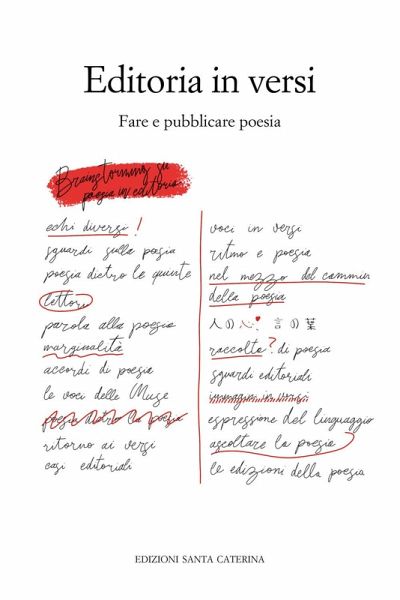 Editoria in versi
Fare e pubblicare poesia
Brainstorming su
poesia in editoria
echi diversi !
sguardi sulla poesia
poesia dietro le quinte
lettori
parola alla poesia
marginalità
accordi di poesia
le voci delle Muse
poesia dietro la poesia
ritorno ai versi
casi editoriali
voci in versi
ritmo e poesia
nel mezzo del cammin
della poesia
人の心 言の葉
raccolta ? di poesia
sguardi editoriali
immagini in versi
espressione del linguaggio
ascoltare la poesia
le edizioni della poesia
EDIZIONI SANTA CATERINA